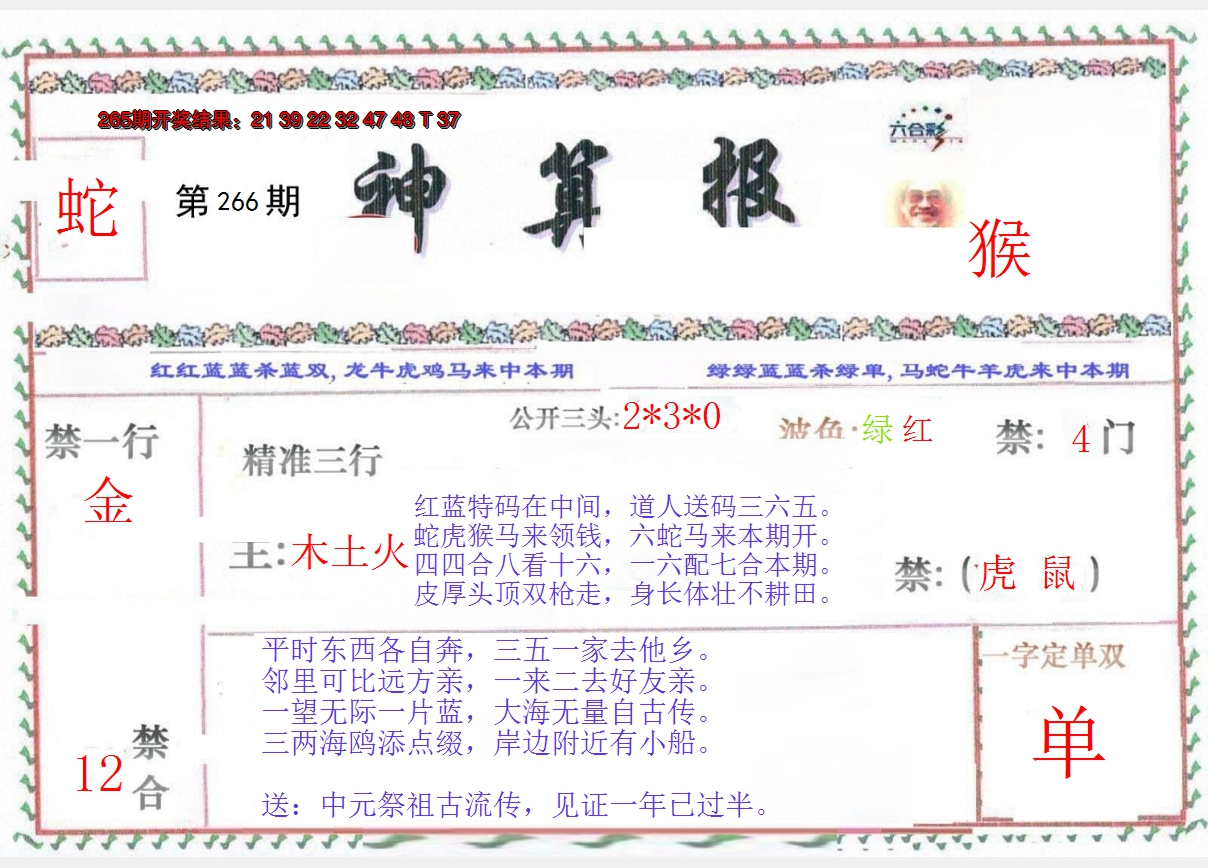 265期开奖结果：21 39 22 32 47 48 T 37
六合彩
蛇
第 266 期
神 算 报
猴
红红蓝蓝杀蓝双, 龙牛虎鸡马来中本期
绿绿蓝蓝杀绿单, 马蛇牛羊虎来中本期
公开三头:2*3*0
波色:绿 红
禁: 4门
禁一行
金
精准三行
主:木土火
红蓝特码在中间，道人送码三六五。
蛇虎猴马来领钱，六蛇马来本期开。
四四合八看十六，一六配七合本期。
皮厚头顶双枪走，身长体壮不耕田。
禁:(虎 鼠)
平时东西各自奔，三五一家去他乡。
邻里可比远方亲，一来二去好友亲。
一望无际一片蓝，大海无量自古传。
三两海鸥添点缀，岸边附近有小船。
送：中元祭祖古流传，见证一年已过半。
12
禁
合
一字定单双
单